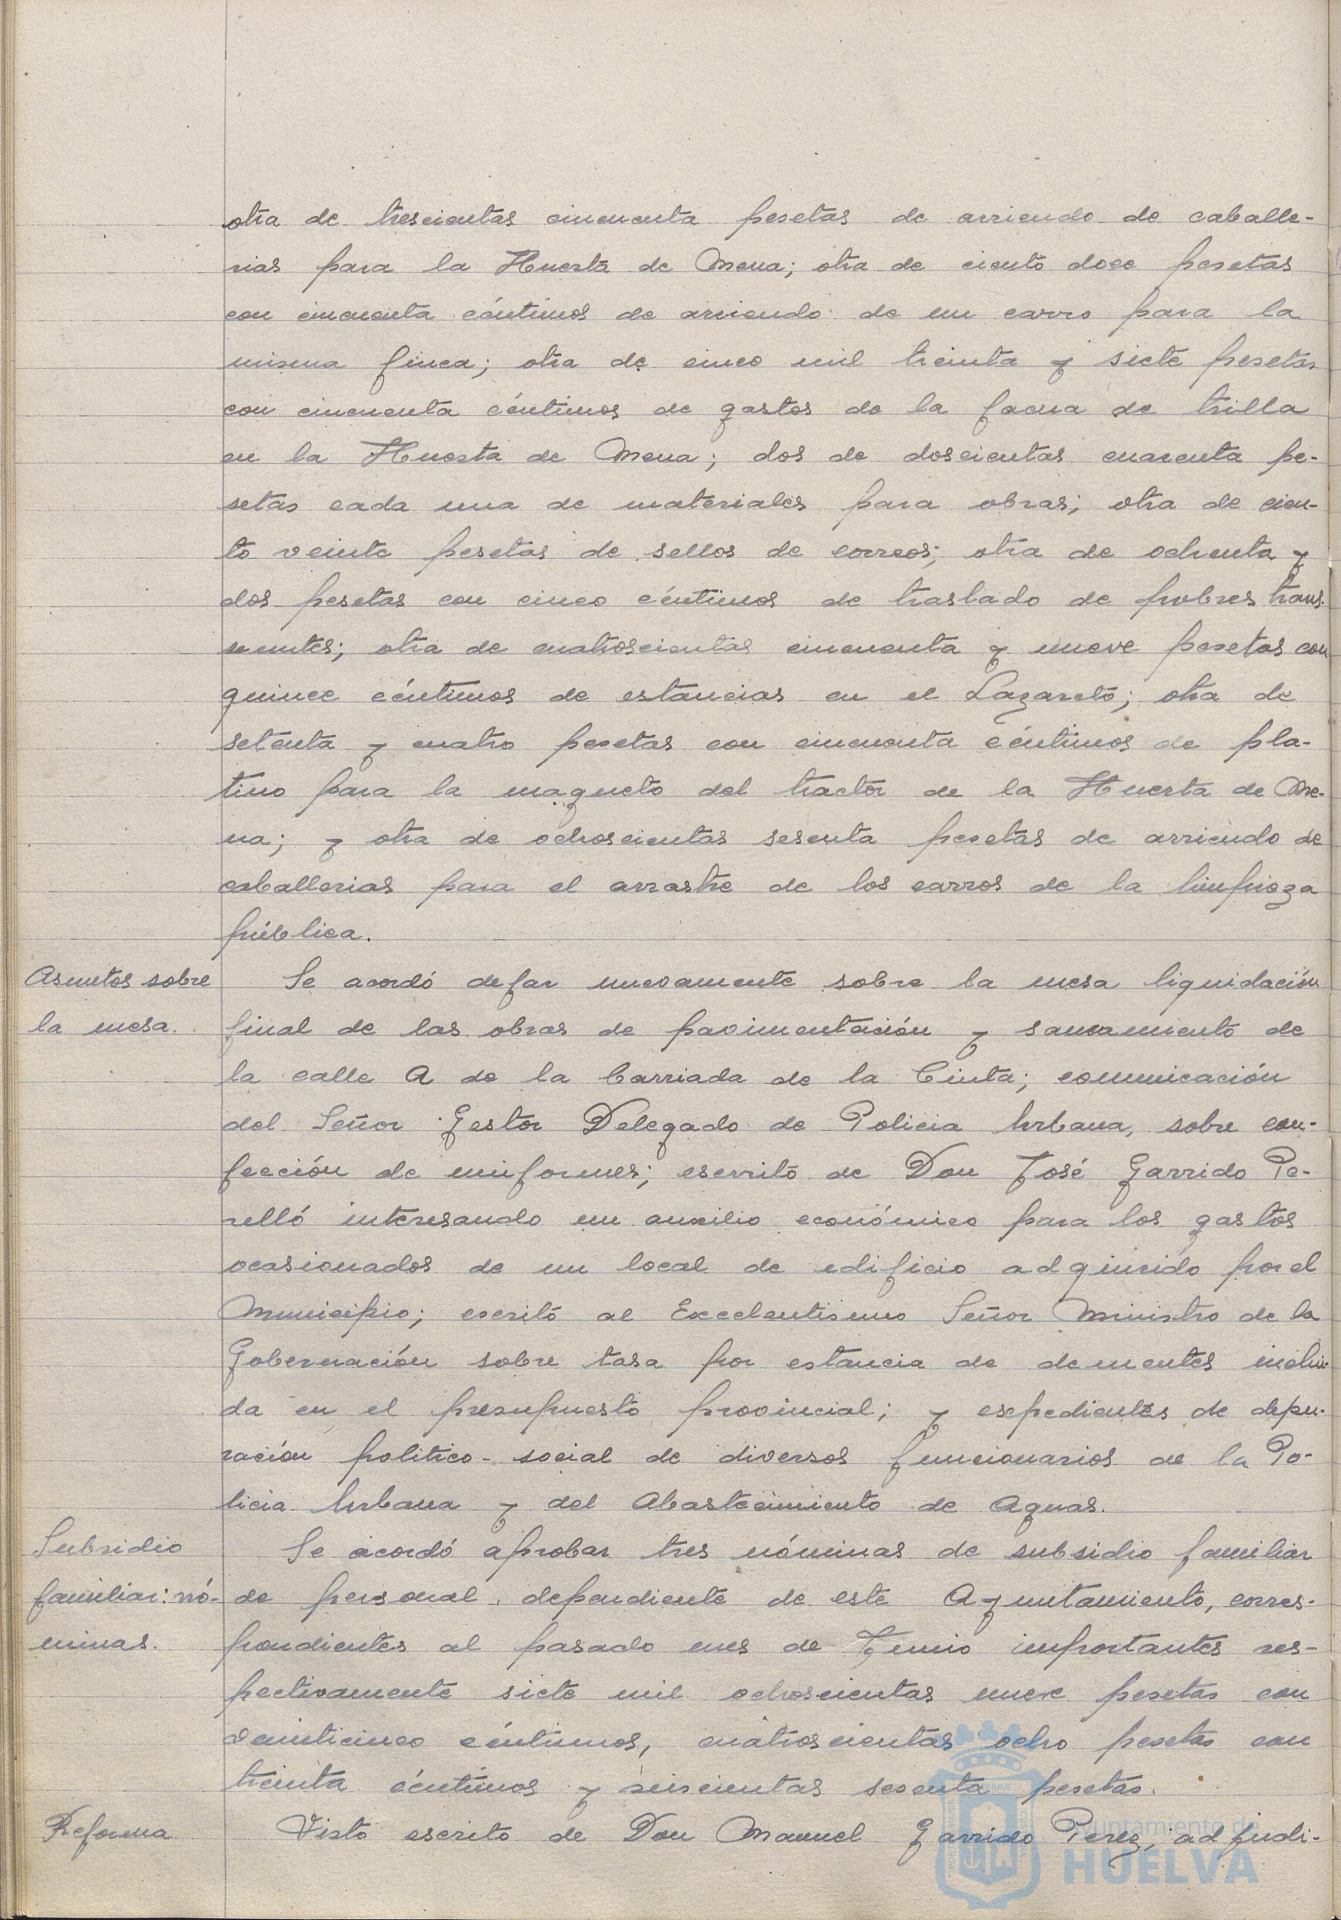 otra de trescientas cincuenta pesetas de arriendo de caballe-
rias para la Huerta de Mena; otra de ciento doce pesetas
con cincuenta céntimos de arriendo de un carro para la
misma finca; otra de cinco mil treinta y siete pesetas
con cincuenta céntimos de gastos de la faena de trilla
en la Huerta de Mena; dos de doscientas cuarenta pe-
setas cada una de materiales para obras; otra de cien-
to veinte pesetas de sellos de correos; otra de ochenta y
dos pesetas con cinco céntimos de traslado de pobres tran-
seuntes; otra de cuatroscientas cincuenta y nueve pesetas con
quince céntimos de estancias en el Lazareto; otra de
setenta y cuatro pesetas con cincuenta céntimos de pla-
tino para la magneto del tractor de la Huerta de Me-
na; y otra de ochoscientas sesenta pesetas de arriendo de
caballerias para el arrastre de los carros de la limpieza
pública.
Asuntos sobre
la mesa.
Se acordó dejar nuevamente sobre la mesa liquidación
final de las obras de pavimentación y saneamiento de
la calle A de la Barriada de la Cinta; comunicación
del Señor Gestor Delegado de Policia Urbana, sobre con-
fección de uniformes; escrito de Don José Garrido Pe-
relló interesando un auxilio económico para los gastos
ocasionados de un local de edificio adquirido por el
Municipio; escrito al Excelentisimo Señor Ministro de la
Gobernación sobre tasa por estancia de dementes inclui-
da en el presupuesto provincial; y expedientes de depu-
ración politico-social de diversos funcionarios de la Po-
licia Urbana y del Abastecimiento de Aguas.
Subsidio
familiar: nó-
minas.
Se acordó aprobar tres nóminas de subsidio familiar
de personal dependiente de este Ayuntamiento, corres-
pondientes al pasado mes de Junio importantes res-
pectivamente siete mil ochoscientas nueve pesetas con
veinticinco céntimos, cuatroscientas ocho pesetas con
treinta céntimos y seiscientas sesenta pesetas.
Reforma
Visto escrito de Don Manuel Garrido Perez, adjudi-
Ayuntamiento de
HUELVA